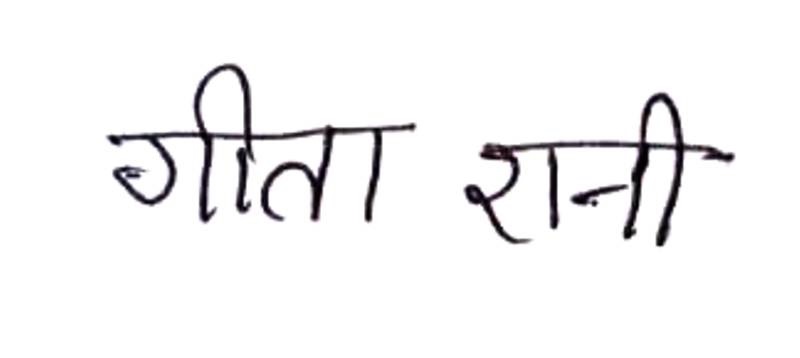 गीता रानी